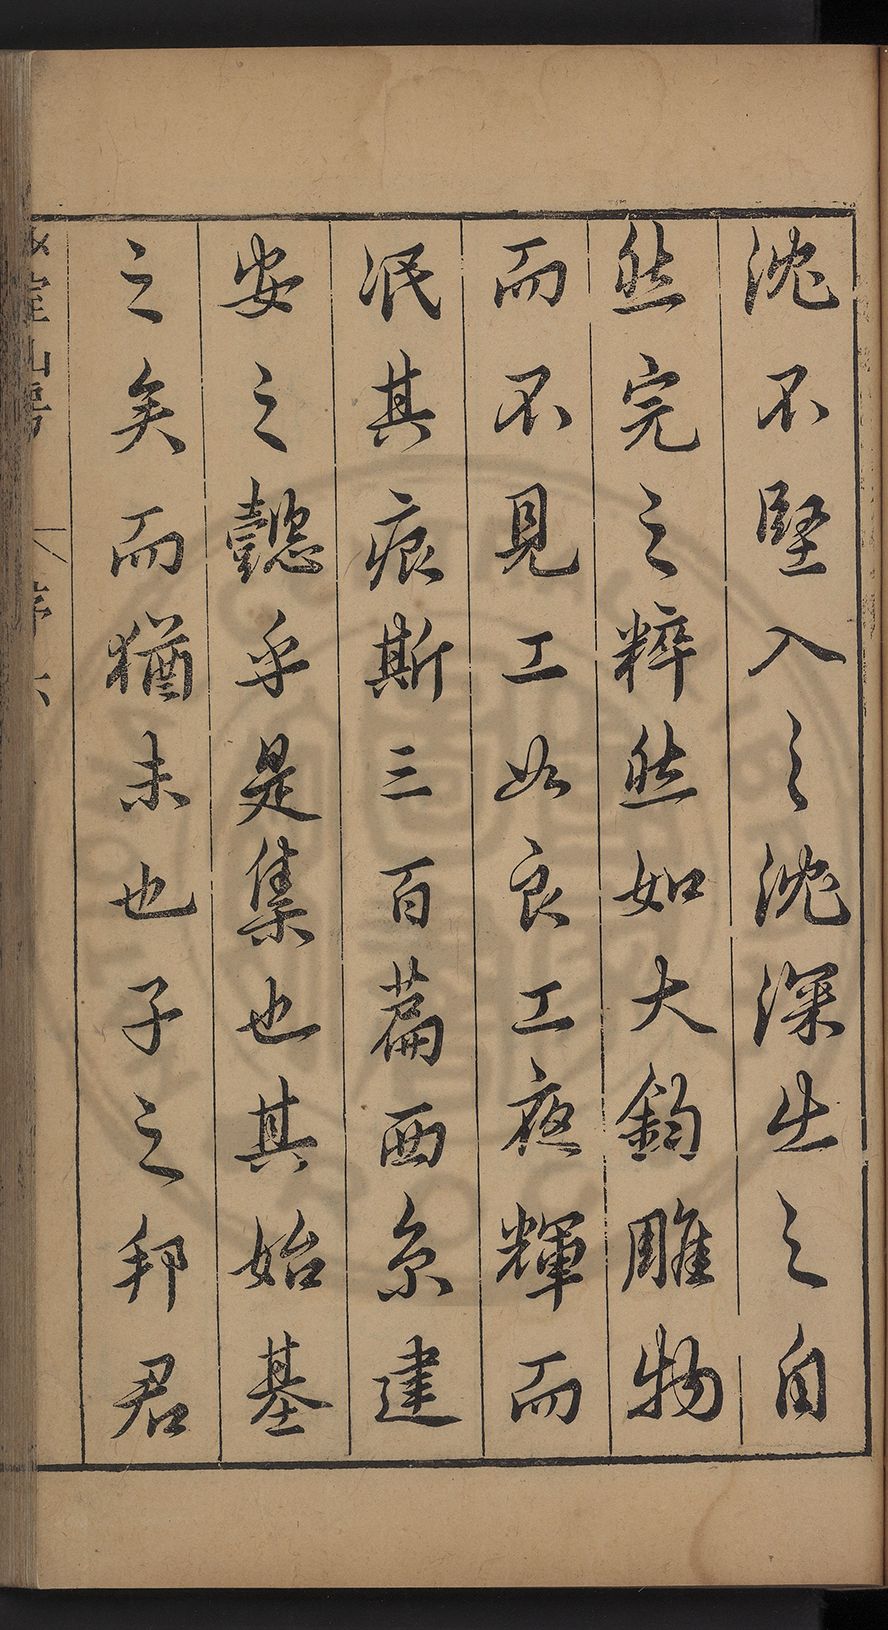 沈不堅入之沈深出之自
然完之粹然如大鈞雕物
而不見工如良工夜輝而
泯其痕斯三百篇西京建
安之懿乎是集也其始基
之矣而猶未也子之邦君
山房
序
六